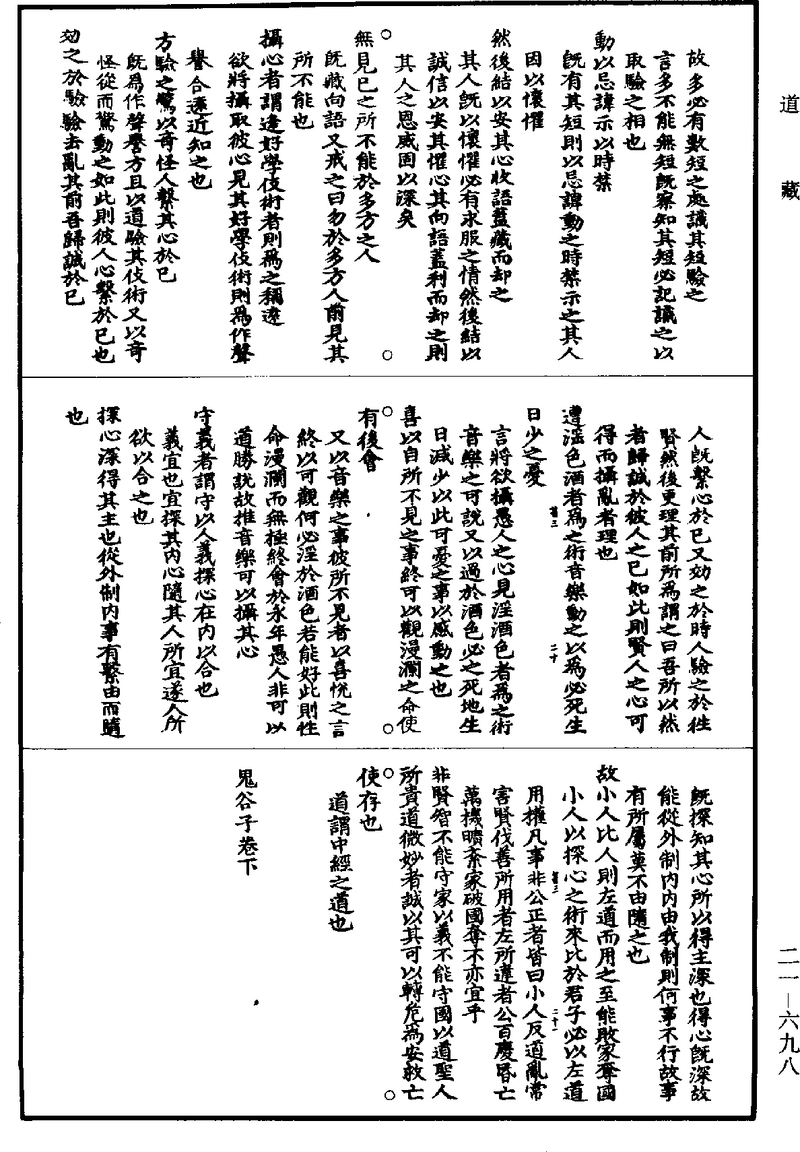 道藏
故多必有數短之處識其短驗之
言多不能無短既察知其短必記識之以
取驗之相也
動以忌諱示以時禁
既有其短則以忌諱動之時禁示之其人
因以懷懼
然後結以安其心收語蓋藏而却之
其人既以懷懼必有求服之情然後結以
誠信以安其懼心其向語蓋利而却之則
其人之恩威固以深矣
無見己之所不能於多方之人
既藏向語又戒之曰勿於多方人前見其
所不能也
攝心者謂逢好學伎術者則爲之稱遠
欲將攝取彼心見其好學伎術則爲作聲
譽合遠近知之也
方驗之驚以奇怪人繫其心於己
既爲作聲譽方且以道驗其伎術又以奇
怪從而驚動之如此則彼人心繫於己也
効之於驗驗去亂其前吾歸誠於己
人既繫心於己又効之於時人驗之於往
賢然後更理其前所爲謂之曰吾所以然
者歸誠於彼人之己如此則賢人之心可
得而攝亂者理也
遭淫色酒者爲之術音樂動之以爲必死生
日少之憂
言將欲攝愚人之心見淫酒色者爲之術
音樂之可說又以過於酒色必之死地生
日減少以此可憂之事以感動之也
喜以自所不見之事終可以觀漫瀾之命使
有後會
又以音樂之事彼所不見者以喜悅之言
終以可觀何必淫於酒色若能好此則性
命漫瀾而無極終會於永年愚人非可以
道勝說故推音樂可以攝其心
守義者謂守以人義探心在内以合也
義宜也宜探其内心隨其人所宜遂人所
欲以合之也
探心深得其主也從外制内事有繫由而隨
也
既探知其心所以得主深也得心既深故
能從外制内内由我制則何事不行故事
有所屬莫不由隨之也
故小人比人則左道而用之至能敗家奪國
小人以探心之術來比於君子必以左道
用權凡事非公正者皆曰小人反道亂常
害賢伐善所用者左所違者公百慶昏亡
萬機曠紊家破國奪不亦宜乎
非賢智不能守家以義不能守國以道聖人
所貴道微妙者誠以其可以轉危爲安救亡
使存也
道謂中經之道也
鬼谷子卷下
二一—六九八